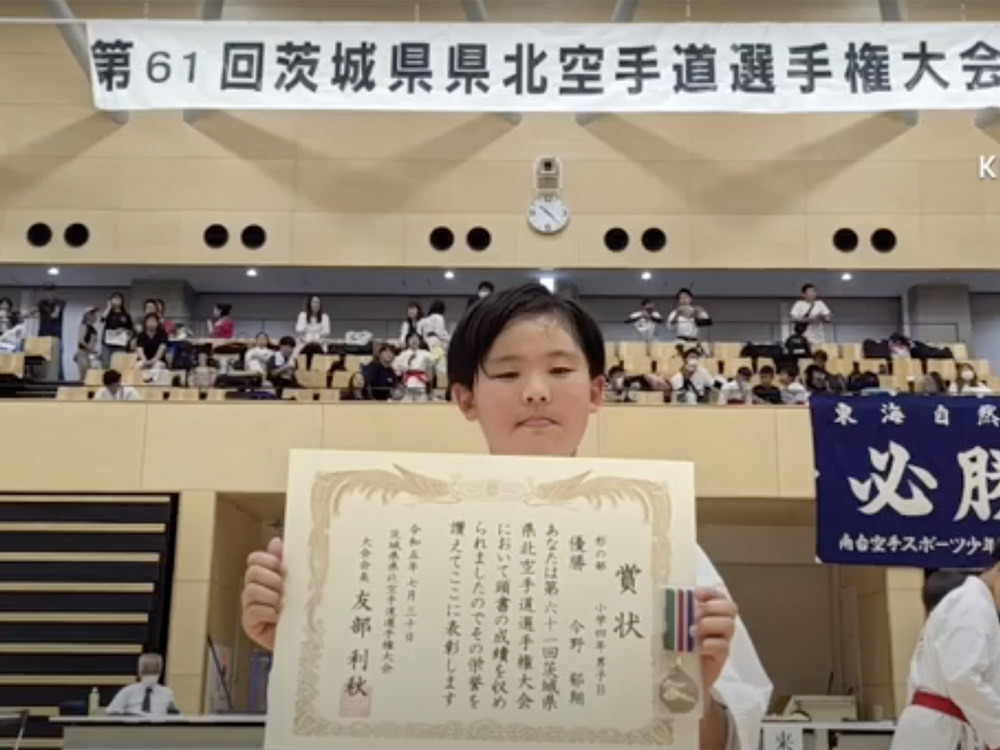 第61回茨城県県北空手道選手権大会
K
東海自然
必勝
南台空手スポーツ少年
賞状
形の部 小学四年・男子の
優勝 今野 郁翔
あなたは第六十一回茨城県
県北空手道選手権大会
において頭書の成績を収め
られましたのでその栄誉を
讃えてここに表彰します
令和五年七月三十日
茨城県県北空手道選手権大会
大会会長 友部利秋